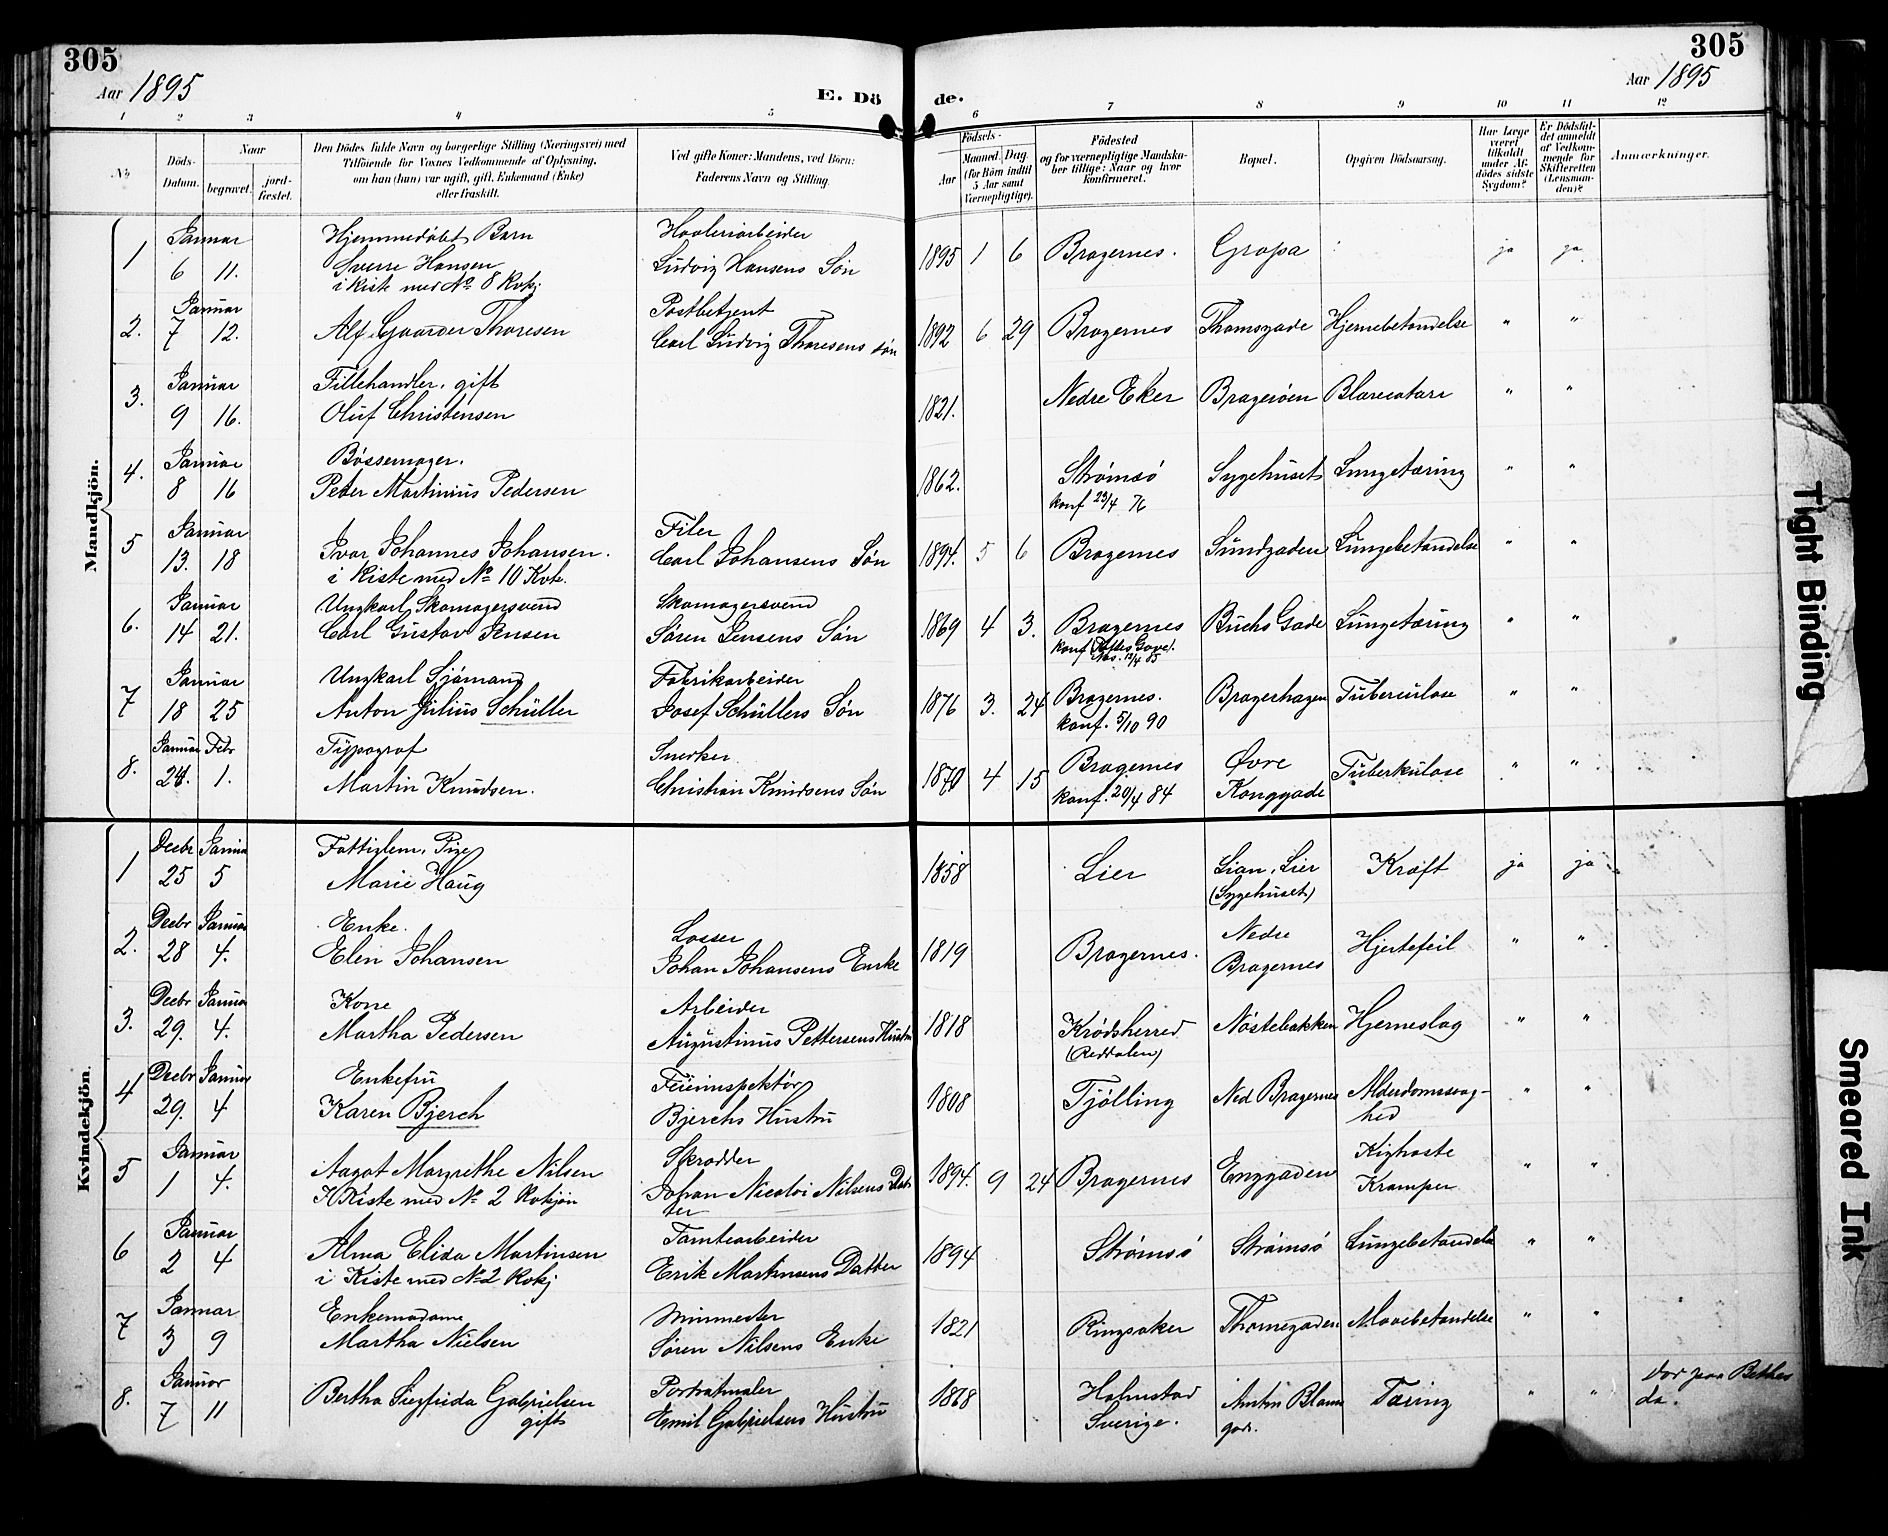 305
305
Aar 1895
Aar 1895
E. Dö de.
1 2 3 4 5 6 7 8 9 10 11 12
No
Döds-Datum.
Naar
begravet.
jord-fæstet.
Den Dödes fulde Navn og borgerlige Stilling (Næringsvei) med
Tilföiende for Voxnes Vedkommende af Oplysning,
om han (hun) var ugift, gift, Enkemand (Enke)
eller fraskilt.
Ved gifte Koner: Mandens, ved Börn:
Faderens Navn og Stilling.
Födsels-
Aar
Maaned. Dag
(for Börn indtil
5 Aar samt
Værnepligtige).
Födested
og for værnepligtige Mandska-
ber tillige: Naar og hvor
konfirmeret.
Bopæl.
Opgiven Dödsaarsag.
Har Læge
været
tilkaldt
under Af-
dödes sidste
Sygdom?
Er Dödsfal-
det anmeldt
af Vedkom-
mende for
Skifteretten
(Lensman-
den)?
Anmærkninger.
Mandkjön.
1 Januar 6 11. Hjemmedøbt Barn
Sverre Hansen
i kiste med No 8 Kvkj
Høvleriarbeider
Ludvig Hansens Søn
1895 1 6 Bragernes. Gropa ja ja
2. Januar 7 12. Alf Gaarder Thoresen
Postbetjent
Carl Ludvig Thoresens søn
1892 6 29 Bragernes Thomsgade Hjernebetændelse " "
3. Januar 9 16. Fillehandler, gift
Oluf Christensen
1821. Nedre Eker Bragerøen Blærecatarr " "
4. Januar 8 16 Bøssemager.
Peter Martinius Pedersen
1862. Strømsø
konf 23/4 76
Sygehuset Lungetæring " "
5 Januar 13. 18 Ivar Johannes Johansen.
i Kiste med No 10 Kvk.
Filer
Carl Johansens Søn
1894. 5 6 Bragernes Sundgaden Lungebetændelse " "
6. Januar 14 21. Ungkarl Skomagersvend
Carl Gustav Jensen
Skomagersvend
Søren Jensens Søn
1869 4 3. Bragernes
konf
12/4 85
Buchs Gade Lungetæring " "
7 Januar 18 25 Ungkarl Sjømand
Anton Julius Schüller
Fabrikarbeider
Josef Schüllers Søn
1876 3. 24 Bragernes.
konf. 5/10 90
Bragerhagen Tuberculose " "
8. Januar Febr 24. 1. Typograf
Martin Knudsen.
Snerker
Christian Knudsens Søn
1870 4 15 Bragernes
konf. 20/4 84
Øvre
Konggade
Tuberkulose " "
Kvindekjön.
1 Decbr Januar 25 5 Fattiglem, Pige
Marie Haug
1858 Lier Lian, Lier
(Sygehuset)
Kræft ja ja
2. Decbr Januar 28 4. Enke.
Elin Johansen
Losser
Johan Johansens Enke
1819 Bragernes. Nedre
Bragernes
Hjertefeil " "
3. Decbr Januar 29. 4. Kone
Martha Pedersen
Arbeider
Augustinus Pettersens Hustru
1818 Krødsherred
Nøstebakken Hjerneslag " "
4 Decbr Januar 29. 4 Enkefru
Karen Bjerch
Feierinspektør
Bjerchs Hustru
1808 Tjølling Ned Bragernes Alderdomssvag-
hed
" "
5 Januar 1 4. Aagot Margrethe Nilsen
I Kiste med No 2 Kvkjøn
Skrædder
Johan Nicolai Nilsens Dat-
ter
1894. 9 24 Bragernes Enggaden Kighoste
Kramper
" "
6 Januar 2 4 Alma Elida Martinsen
i Kiste med No 2 Kvkj
Tomtearbeider
Erik Martinsens Datter
1894 Strømsø Strømsø Lungebetændelse " "
7 Januar 3 9 Enkemadame
Martha Nielsen
Søren Nilsens Enke
1821 Ringsaker Thornegaden Mavebetændelse " "
8. Januar 7 11 Bertha Sigfrida Gabrielsen
gift
Portrætmaler
Emil Gabrielsens Hustru
1868 Halmstad
Sverige.
Anton Blaaus
gade.
Tæring " "
død paa Bethes
da.
Tight Binding
Smeared Ink